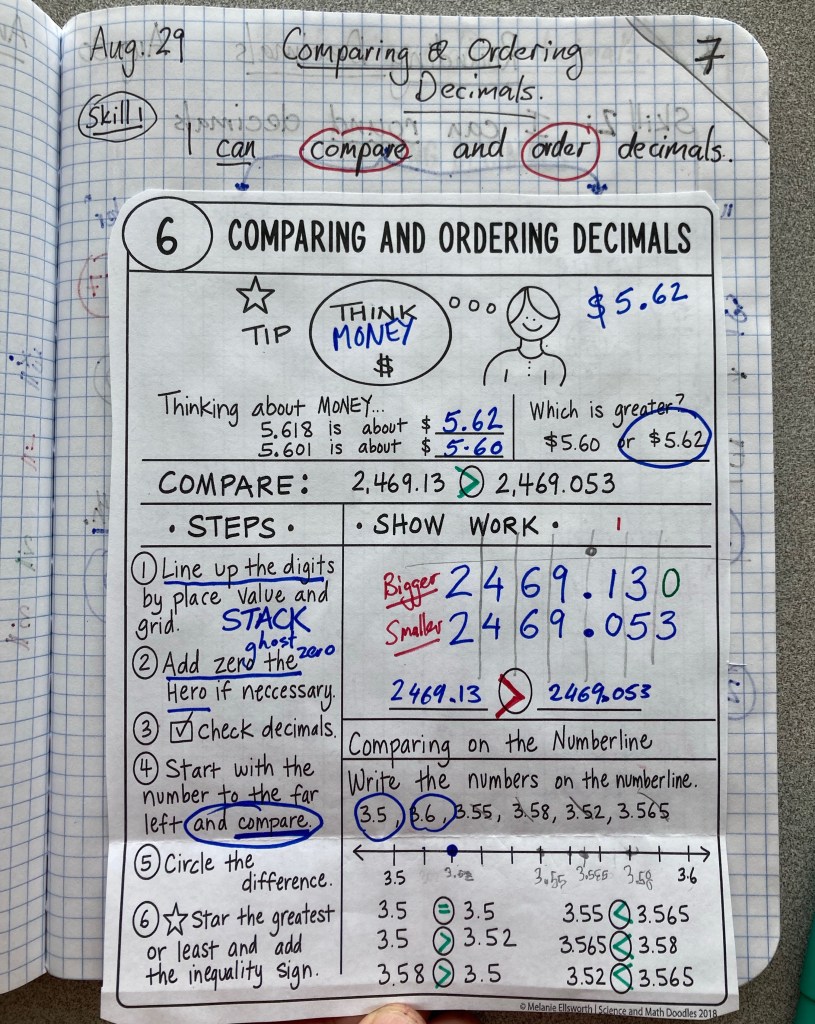 Aug. 29
Comparing & Ordering
Decimals.
7
Skill 1
I can compare and order decimals.
6
COMPARING AND ORDERING DECIMALS
TIP
THINK
MONEY
$
$5.62
Thinking about MONEY...
5.618 is about $ 5.62
5.601 is about $ 5.60
Which is greater?
$5.60 or $5.62
COMPARE: 2,469.13 > 2,469.053
• STEPS •
1 Line up the digits
by place value and
grid. STACK
ghost zero
2 Add zero the
Hero if neccessary.
3 ☑ Check decimals.
4 Start with the
number to the far
left and compare.
5 Circle the
difference.
6 ☆ Star the greatest
or least and add
the inequality sign.
• SHOW WORK •
Bigger 2469.130
Smaller 2469.053
2469.13 > 2469.053
Comparing on the Numberline
Write the numbers on the numberline.
3.5, 3.6, 3.55, 3.58, 3.52, 3.565
3.5 3.55 3.58 3.6
3.5 = 3.5
3.5 > 3.52
3.58 > 3.5
3.55 < 3.565
3.565 < 3.58
3.52 < 3.565
© Melanie Ellsworth | Science and Math Doodles 2018